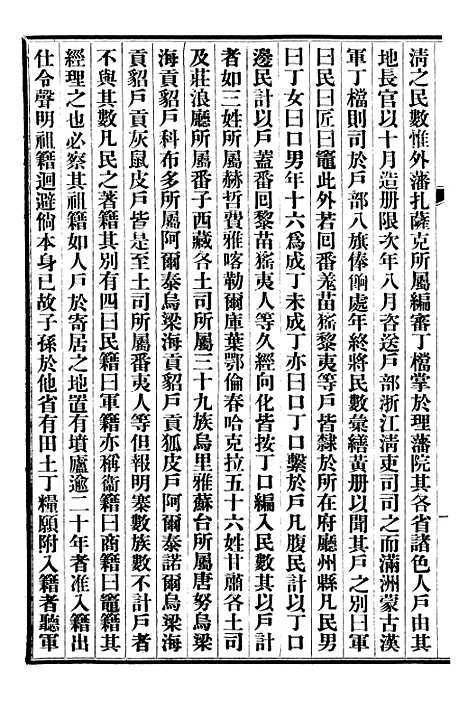 清之民數惟外藩扎薩克所屬編審丁檔掌於理藩院其各省諸色人戶由其
地長官以十月造册限次年八月咨送戶部浙江清吏司司之而滿洲蒙古漢
軍丁檔則司於戶部八旗俸餉處年終將民數彙繕黃册以聞其戶之別曰軍
曰民曰匠曰竈此外若回番羌苗猺黎夷等戶皆隸於所在府廳州縣凡民男
曰丁女曰口男年十六爲成丁未成丁亦曰口丁口繫於戶凡腹民計以丁口
邊民計以戶蓋番回黎苗猺夷人等久經向化皆按丁口編入民數其以戶計
者如三姓所屬赫哲費雅喀勒爾庫葉鄂倫春哈克拉五十六姓甘肅各土司
及莊浪廳所屬番子西藏各土司所屬三十九族烏里雅蘇台所屬唐努烏梁
海貢貂戶科布多所屬阿爾泰烏梁海貢貂戶貢狐皮戶阿爾泰諾爾烏梁海
貢貂戶貢灰鼠皮戶皆是至土司所屬番夷人等但報明寨數族數不計戶者
不與其數凡民之著籍其別有四曰民籍曰軍籍亦稱衞籍曰商籍曰竈籍其
經理之也必察其祖籍如人戶於寄居之地置有墳廬逾二十年者准入籍出
仕令聲明祖籍迴避倘本身已故子孫於他省有田土丁糧願附入籍者聽軍